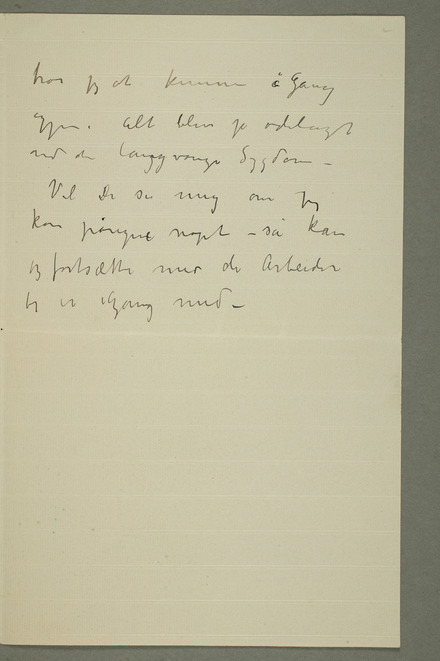 tror jeg at kunne i Gang
igjen. Alt blev jo ødelagt
ved den langvarige Sygdom –
Vil De si mig om jeg
kan få noget – så kan
jeg fortsætte med de Arbeider
jeg er igang med –